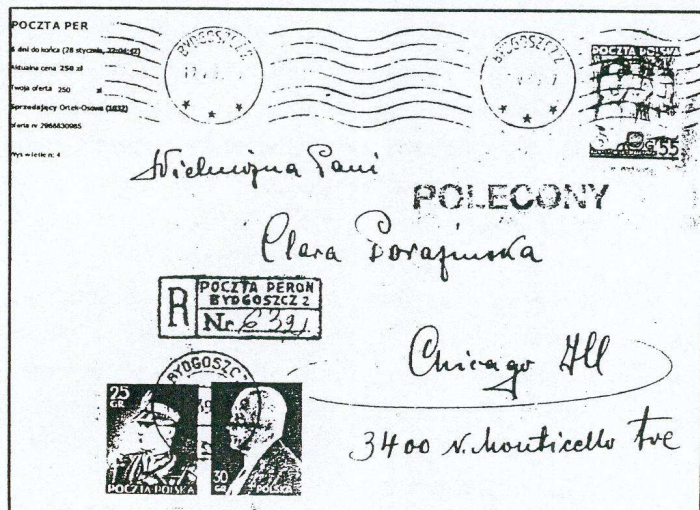 POCZTA PER
6 dni do końca (28 stycznia, 22:04:42)
Aktualna cena 250 zł
Twoja oferta 250 zł
Sprzedający Ortek-Osowa (1832)
Oferta nr 2968830965
Wyświetleń: 4
BYDGOSZCZ 2
BYDGOSZCZ 2
POCZTA POLSKA
GR 55
Wielmożna Pani
POLECONY
Clara
R
POCZTA PERON
BYDGOSZCZ 2
Nr 6391
Chicago Ill
3400 N. Monticello Ave
BYDGOSZCZ
25 GR
POCZTA POLSKA
30 GR
POLSKA